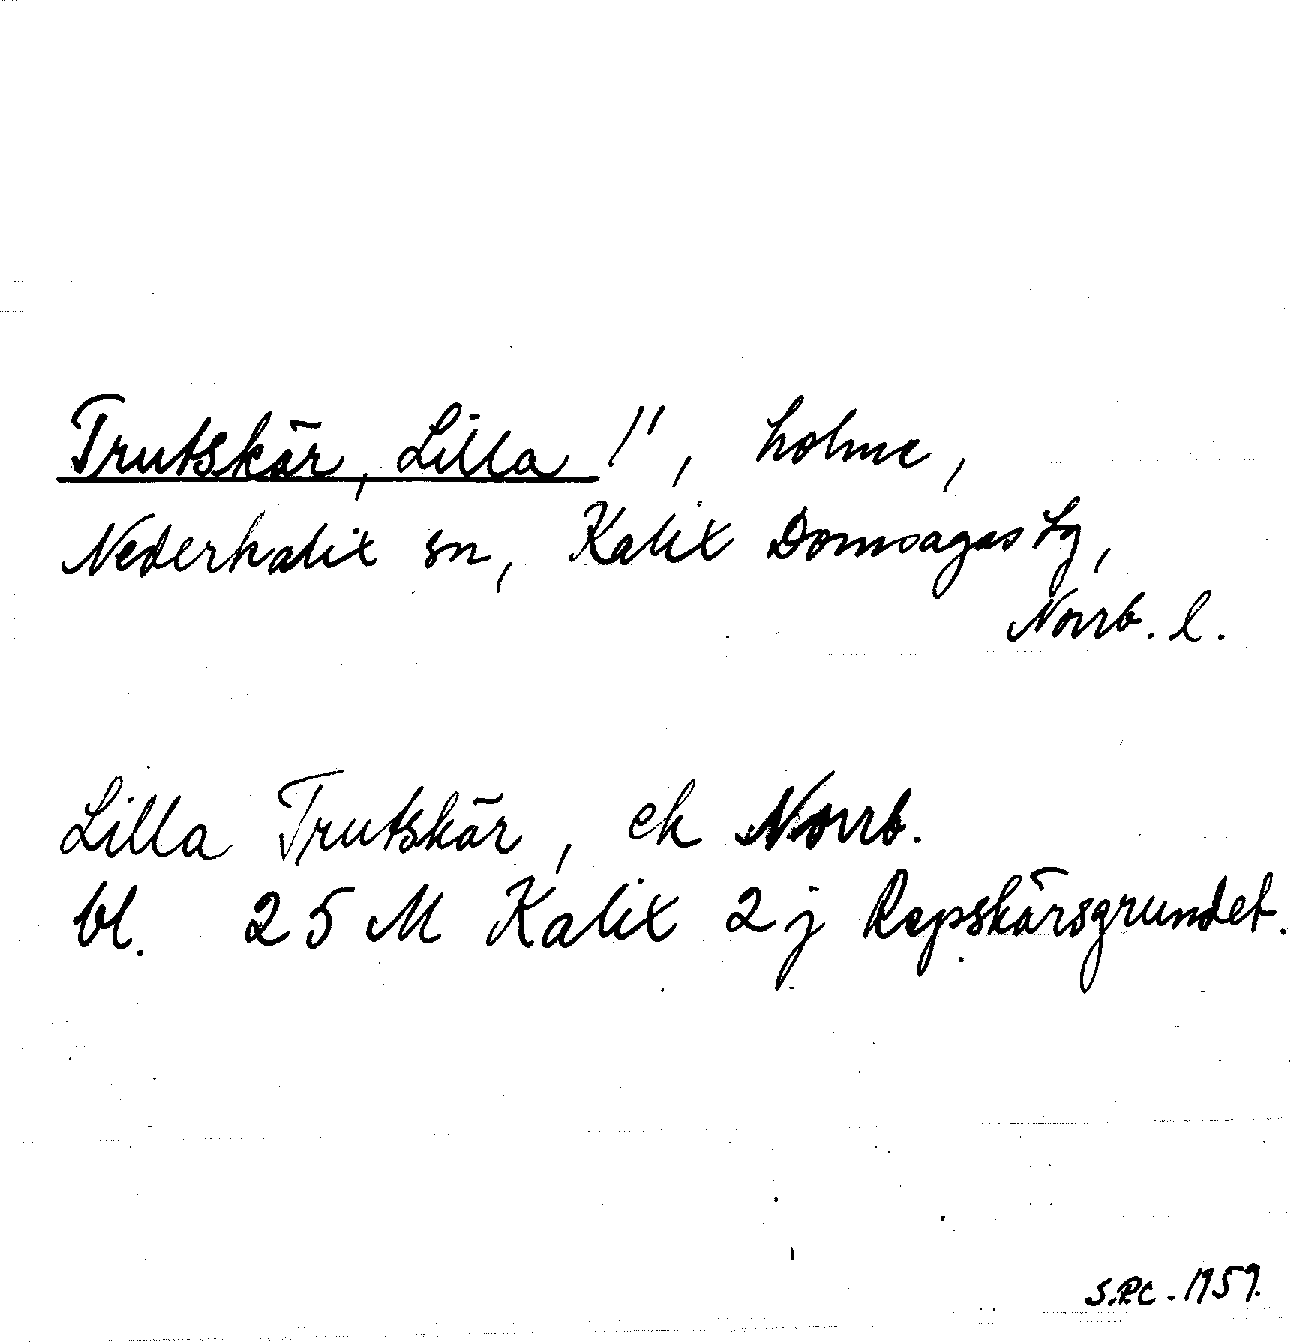 Trutskär, Lilla !', holme,
Nederkalix sn, Kalix Domsagas tg,
Norrb. l.
Lilla Trutskär, ek Norrb.
bl. 25 M Kalix 2 j Repskärsgrundet.
S.P.C. 1959.